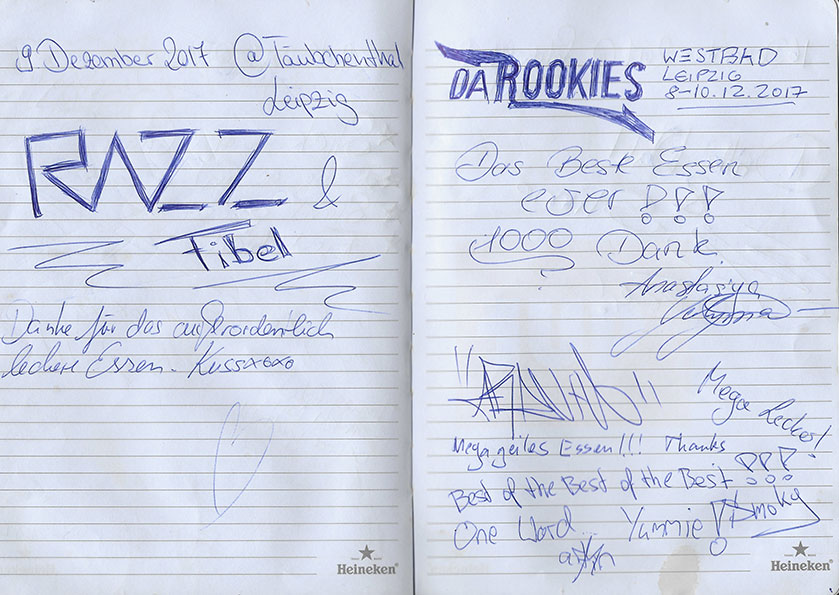 9 Dezember 2017 @Täubchenthal
Leipzig
RAZZ &
Fibel
Danke für das außerordentlich
leckere Essen. Kussxoxo
Heineken®
DA ROOKIES
WESTBAD
LEIPZIG
8-10.12.2017
Das Beste Essen
ever !!!
1000 Dank.
Anastasiya
Mega Lecker!
Megageiles Essen!!! Thanks
Best of the Best of the Best !!!
One Word... Yummie! Smoky
Heineken®